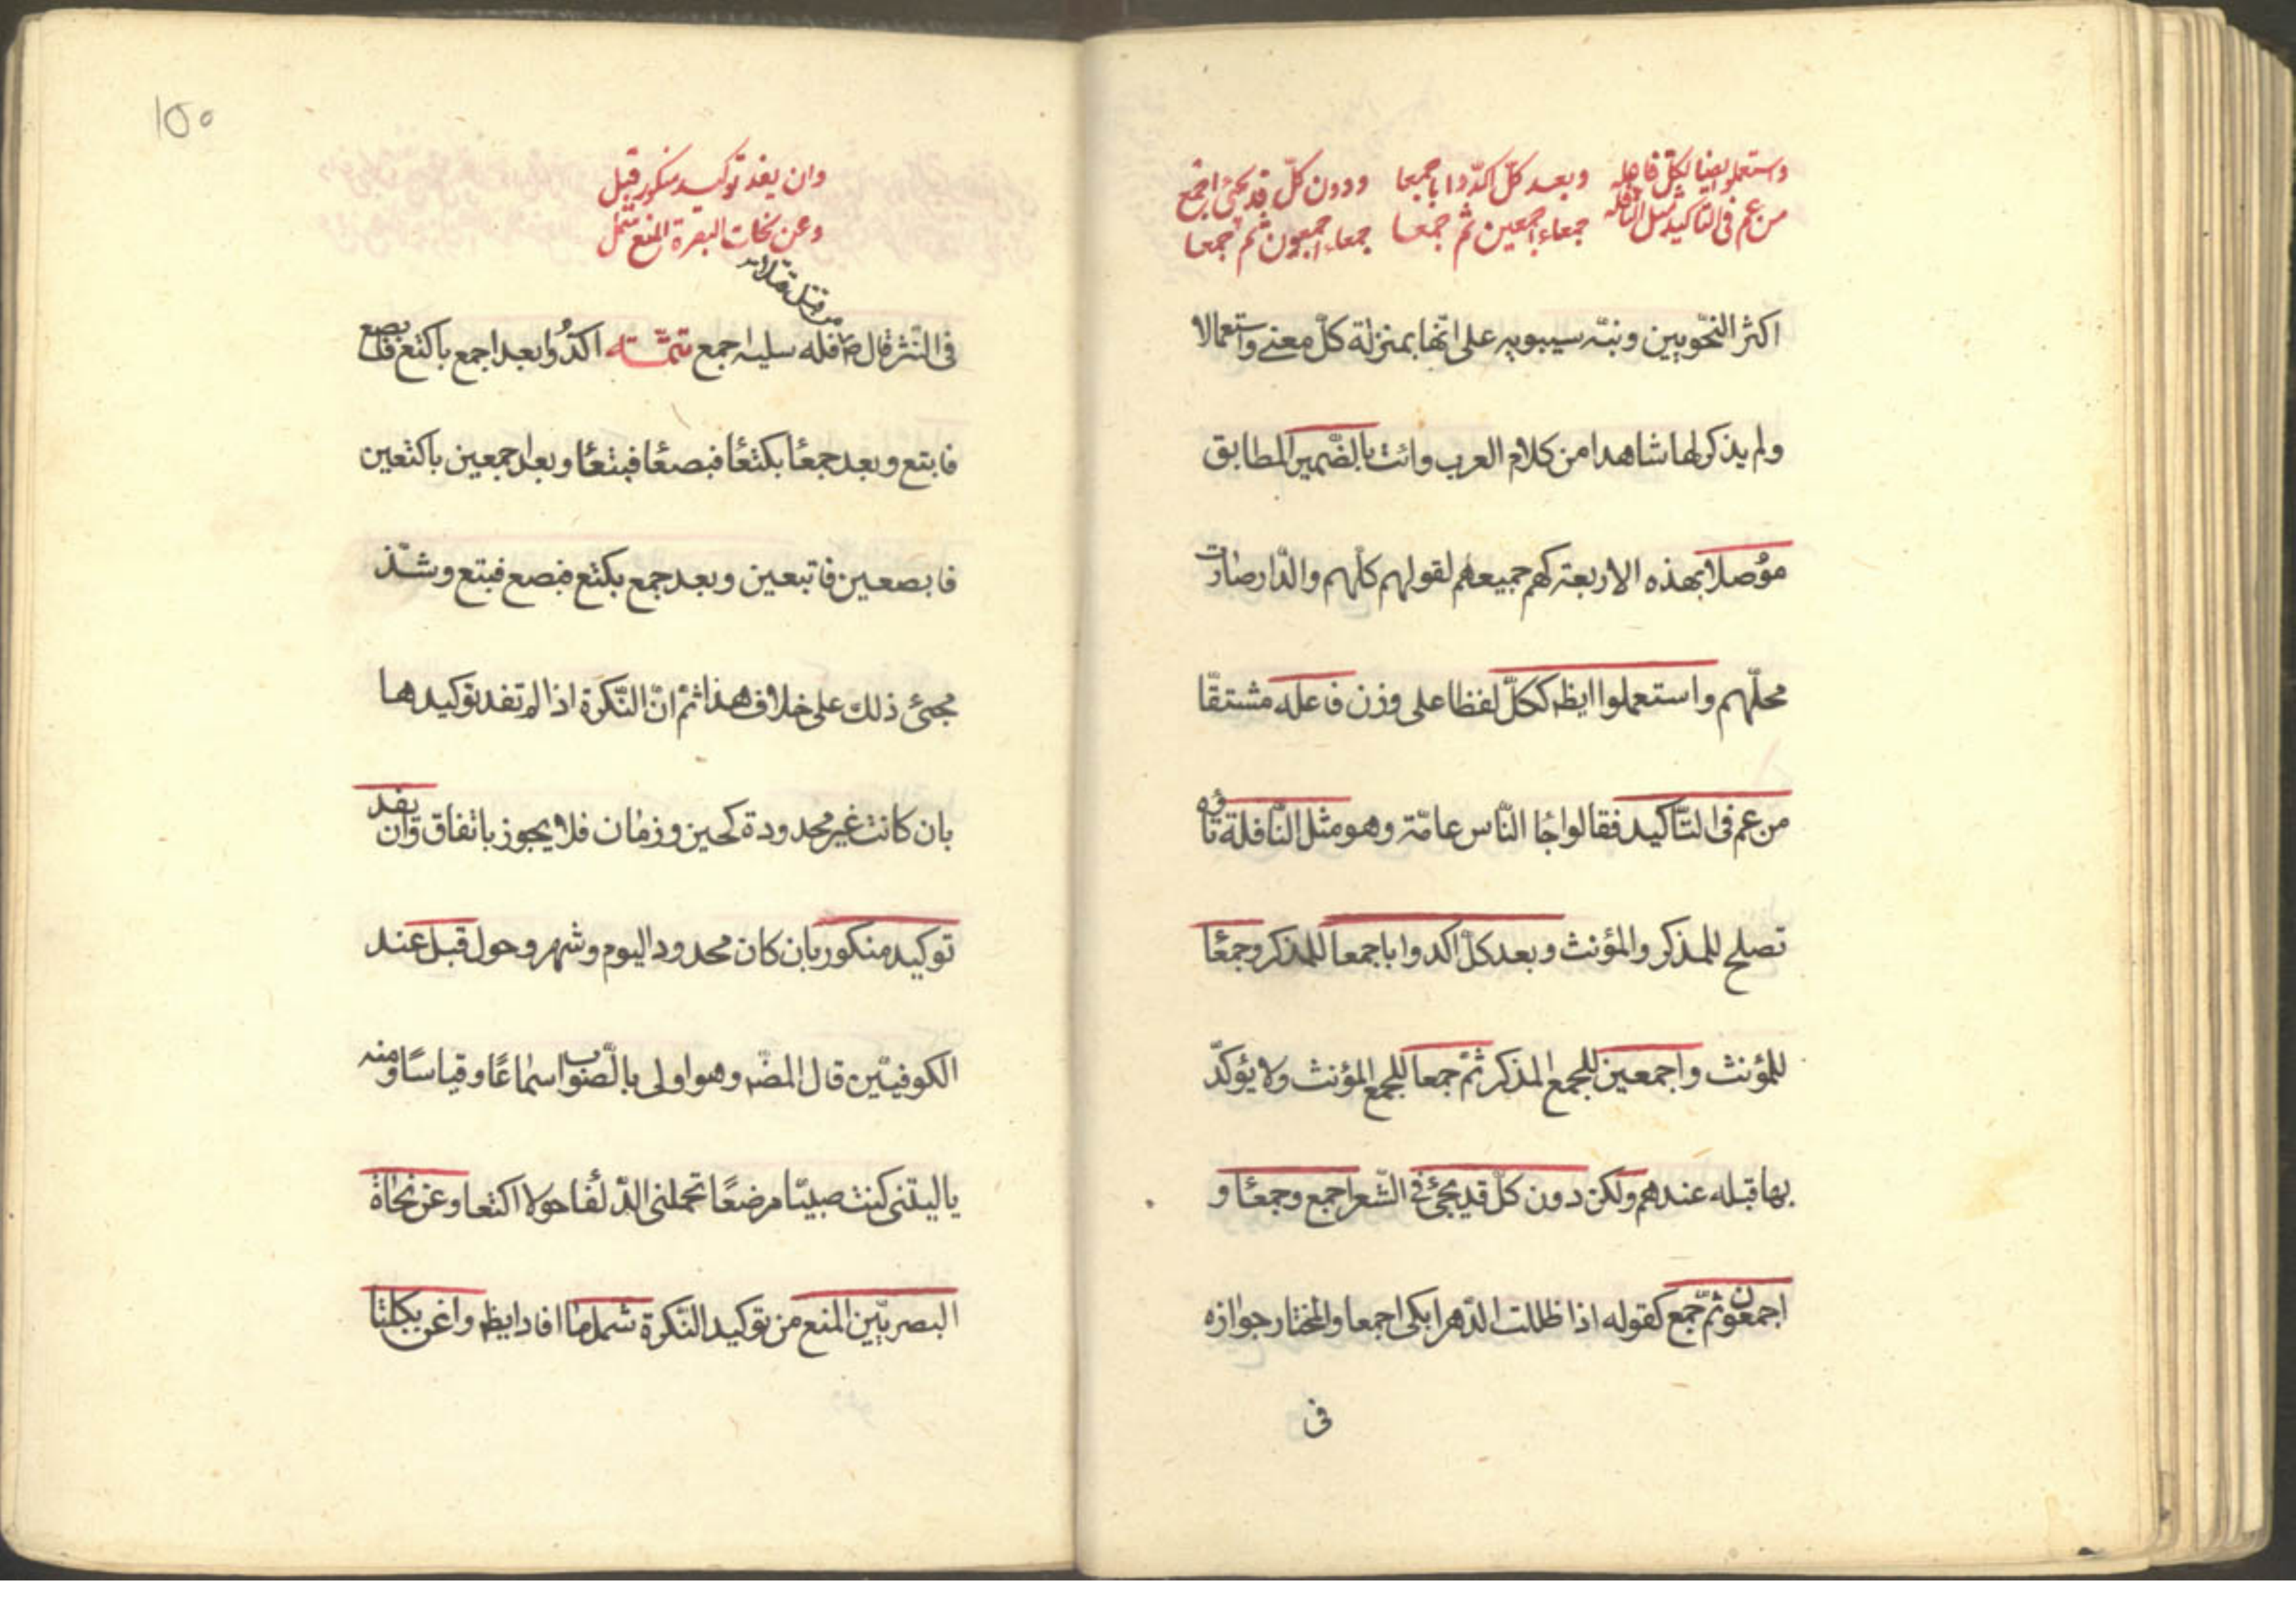 واستعملوا ايضا ككل فاعله وبعد كل اكدوا باجمعا ودون كل قد يجئ اجمع
من عم فى التاكيد مثل النافله جمعاء اجمعين ثم جمعا جمعاء اجمعون ثم جمعا
اكثر النحّويين ونبّه سيبويه على انّها بمنزلة كلّ معنى واستعمالا
ولم يذكر لها شاهدا من كلام العرب وائت بالضّمير المطابق
مؤصلا بهذه الاربعة كهم جميعهم لقولهم كلّهم والدّار صارت
محلّهم واستعملوا ايظ ككلّ لفظا على وزن فاعله مشتقّا
من عم فى التّاكيد فقالوا جا النّاس عامّة وهو مثل النّافلة تاؤه
تصلح للمذكر والمؤنث وبعد كلّ اكدوا باجمعا للمذكر وجمعًا
للمؤنث واجمعين للجمع المذكر ثمّ جمعا للجمع المؤنث ولا يؤكدّ
بها قبله عندهم ولكن دون كلّ قد يجئ فى الشّعر اجمع وجمعًا و
اجمعون ثمّ جمع كقوله اذا ظللت الدّهر ابكى اجمعا والمختار جوازه
فى
١٥٥
وان يفد توكيد منكور قبل
وعن نحات البصرة المنع شمل
من قتل قتيلا
فى النّثر قال ص فله سلبه اجمع تتمّة اكدُّوا بعد اجمع باكتع فابصع
فابتع وبعد جمعًا بكتعًا فبصعًا فبتعًا وبعد اجمعين باكتعين
فابصعين فابتعين وبعد جمع بكتع فبصع فبتع وشذّ
مجئ ذلك على خلاف هذا ثمّ انّ النّكرة اذا لم تفد توكيدها
بان كانت غير محدودة كحين وزمان فلا يجوز باتفاق وان يفد
توكيد منكور بان كان محدودا ليوم وشهر وحول قبل عند
الكوفيّين قال المصّ وهو اولى بالصّواب سماعًا وقياسًا ومنه
يا ليتنى كنت صبيّا مرضعًا تحملنى الذّلفا حولا اكتعا وعن نحاة
البصريّين المنع من توكيد النّكرة شمل ما افاد ايظ واغن بكلتا